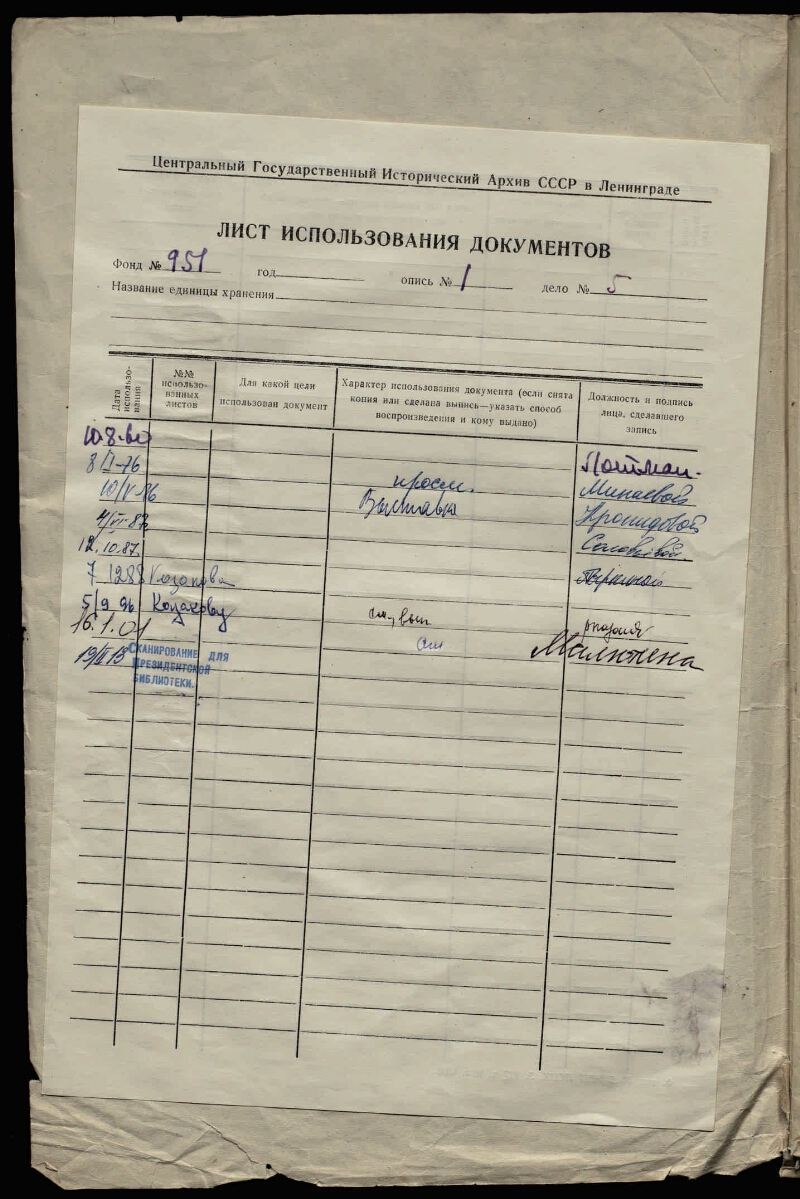 Центральный Государственный Исторический Архив СССР в Ленинграде
ЛИСТ ИСПОЛЬЗОВАНИЯ ДОКУМЕНТОВ
Фонд № 951 год опись № 1 дело № 5
Название единицы хранения
Дата использования
№№ использованных листов
Для какой цели использован документ
Характер использования документа (если снята копия или сделана выпись—указать способ воспроизведения и кому выдано)
Должность и подпись лица, сделавшего запись
10-8- Потман.
8/I-76 просм. Минаевой
10/V-86 Выставка
4/VI-87
12.10.87.
7 1288 Казакова
5/9 96 Казакову
16.1.01 Малютена
19/III 13 СКАНИРОВАНИЕ ДЛЯ
ПРЕЗИДЕНТСКОЙ
БИБЛИОТЕКИ.